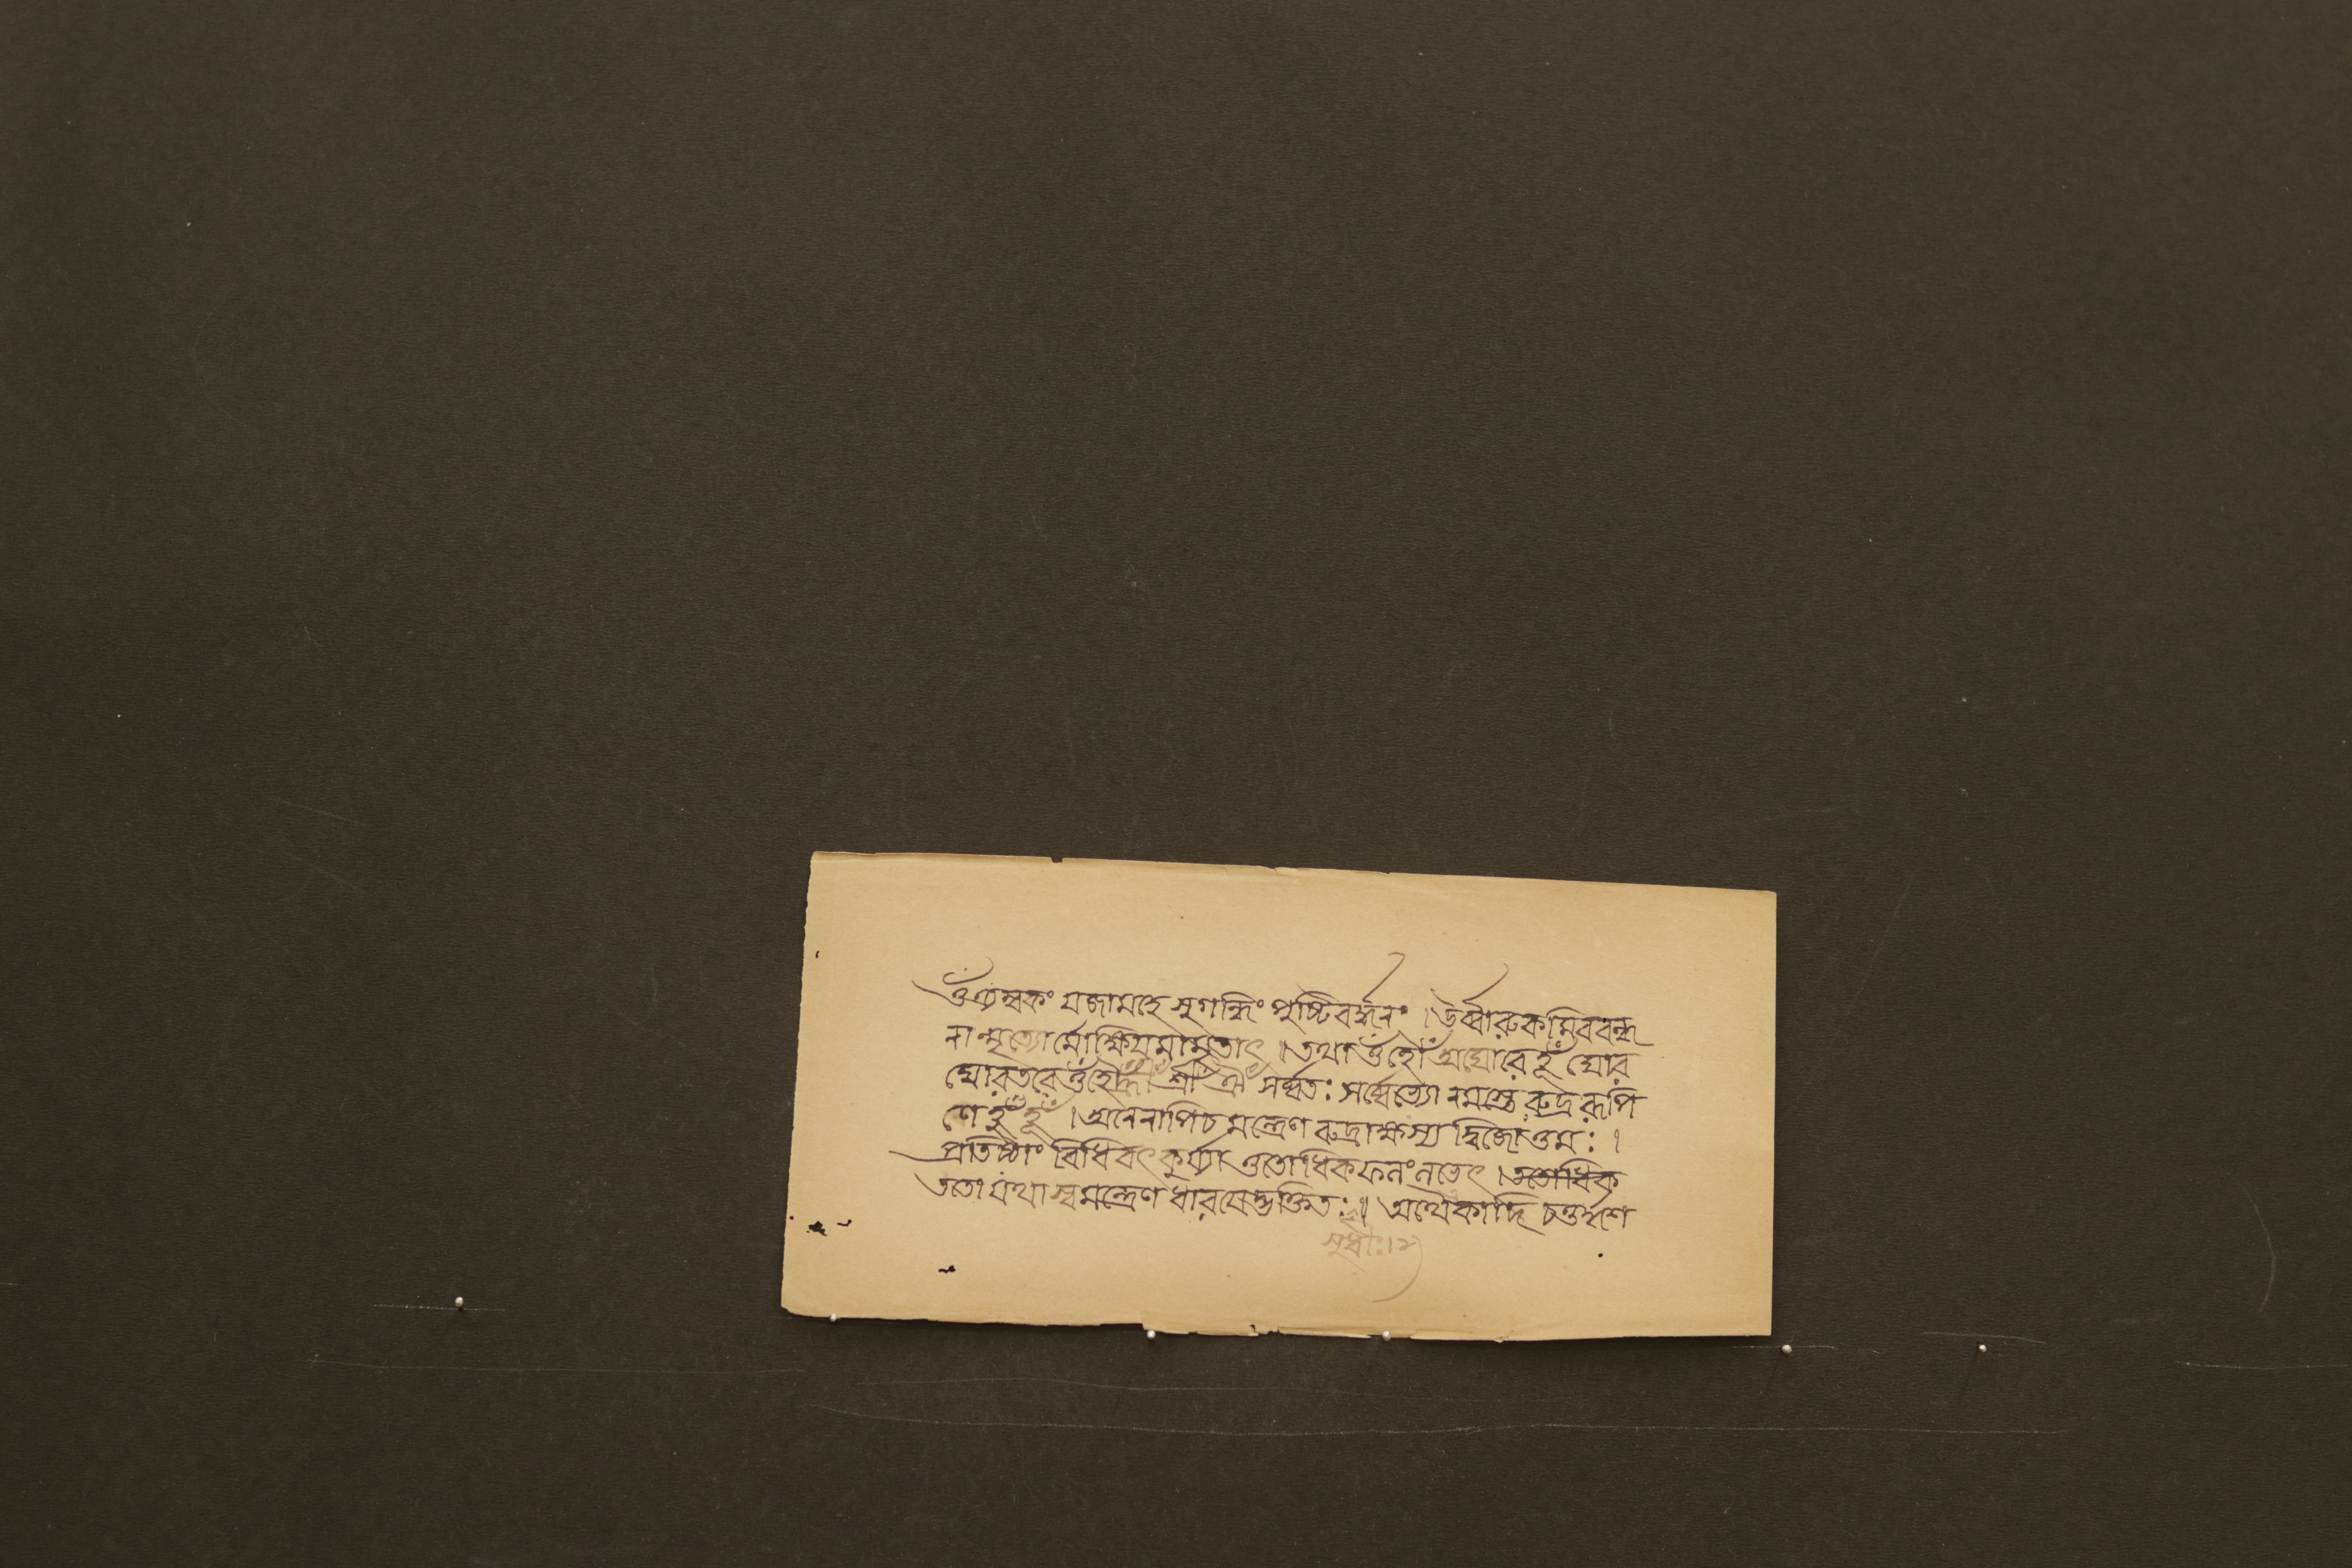 ওঁ ত্র্যম্বকং যজামহে সুগন্ধিং পুষ্টিবর্দ্ধনং । উর্ব্বারুকমিব বন্ধ
নান্মৃত্যোর্ম্মোক্ষিয় মামৃতাৎ । তথা ওঁ হৌঁ অঘোরে হূঁ ঘোর
ঘোরতরে ওঁ হৌঁ হ্রীঁ শ্রীঁ ঐঁ সর্ব্বতঃ সর্ব্বেভ্যো নমস্তে রুদ্ররূপি
ণে হূঁ হূঁ । অনেনাপি চ মন্ত্রেণ রুদ্রাক্ষস্য দ্বিজোত্তমঃ ।
প্রতিষ্ঠাং বিধিবৎ কুর্য্যাত্ততোধিকফলং লভেৎ । ততোধিক
ততো যথা স্বমন্ত্রেণ ধারয়েদ্ভক্তিতঃ ॥ অথৈকাদি চতুর্দ্দশ
সুধীঃ ।